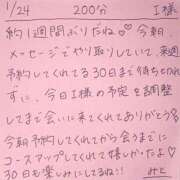 1/24 200分 I様
約1週間ぶりだね♡今朝、
メッセージでやり取りしていて、来週
予約してくれてる30日まで待ちきれ
ずに、今日I様の予定を調整
してまで会いに来てくれてありがとう!
今朝予約してくれてから会うまでに
コースアップしてくれて嬉しかったよ♡
30日も楽しみにしてるね!!